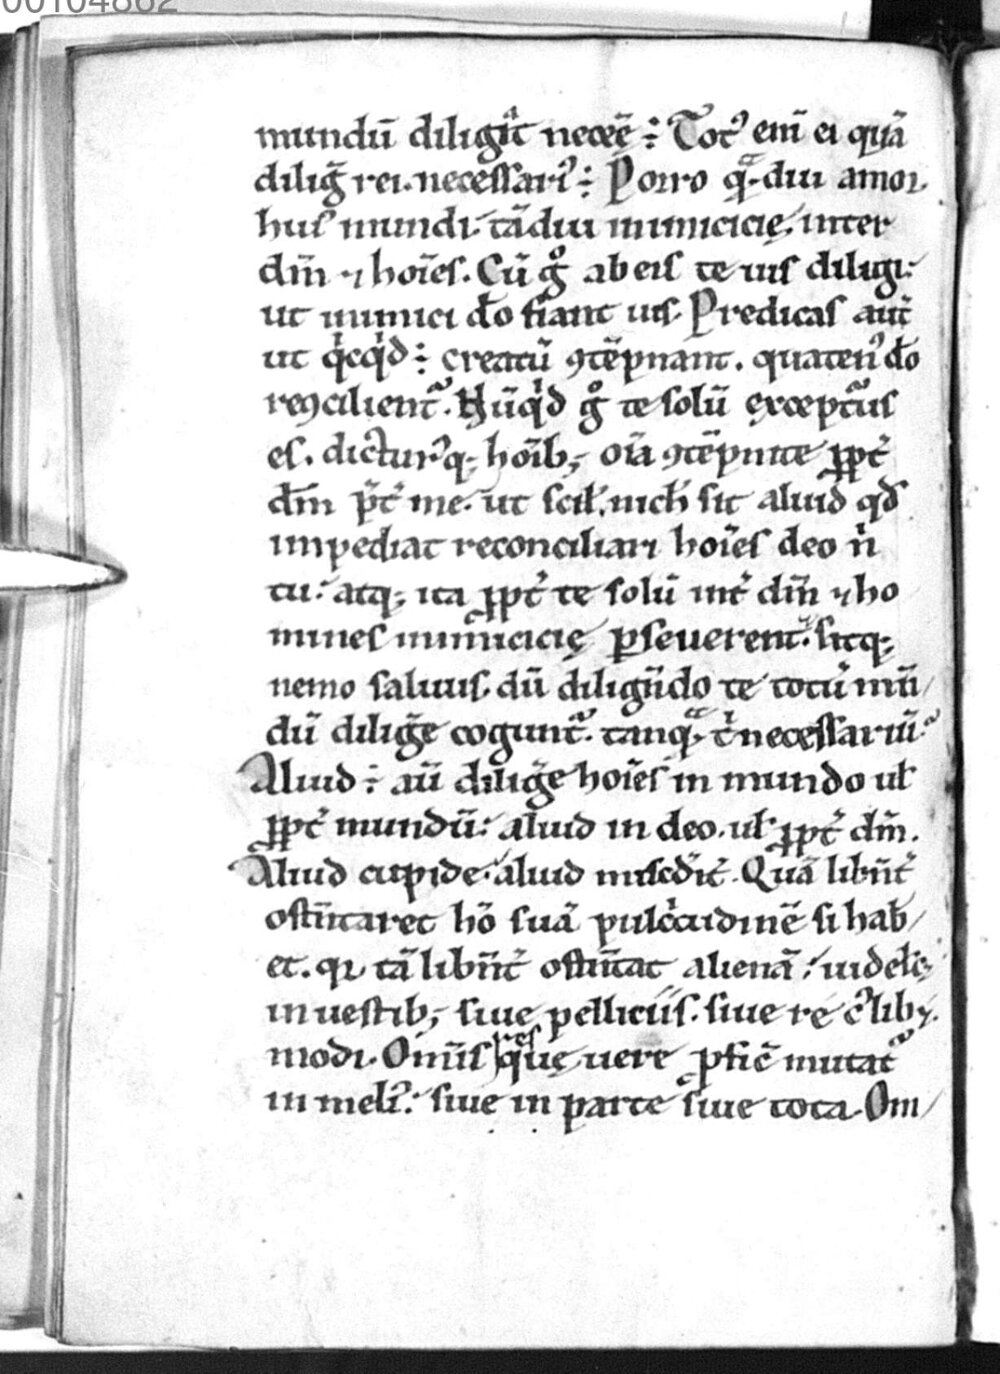 00104862
mundū diligit neceē ÷ Totꝰ enī ei quā
diligͫ rei. necessariꝰ ÷ Porro qͣ̄diu amor
huius mundi. tādiu inimicicię inter
dm̄ ⁊ hoīes. Cū gͦ ab eis te uis diligi.
ut inimici dō fiant uis. Predicas aut̄
ut qͥcqͥd ÷ creatū ꝯtēpnant. quatenꝰ dō
reꝯcilient᷑. Nūqͥd gͦ te solū exceptur᷒us
es. dicturꝰq; hoīb; oīa ꝯtēpnite ꝓpt̄
dm̄ p̄t̄ me. ut scił. nich̄ sit aliud qd̄
impediat reconciliari hoīes deo n̄
tu. atq; ita ꝓpt̄ te solū int̄ dm̄ ⁊ ho
mines inimicicię ꝑseuerent. sitq;
nemo saluus. dū diligēdo te totū mū
dū diligͫe cogunt᷑. tanqͣ̄ t̄ necessariū.
Aliud ÷ aū diligͫe hoīes in mundo uł
ꝓpt̄ mundū. aliud in deo. uł ꝓpt̄ dm̄.
Aliud cupide. aliud mis̄dit̄. Quā libn̄t̄
ostn̄taret hō suā pulc̄tudinē si hab
et. qi tā libn̄t̄ ostn̄tat alienā. uidelȩ
in uestib; siue pelliciis. siue re cꝰlib;
modi. Omīs res quę uere ꝓficē mutat᷑
in meliꝰ. siue in parte siue tota. Om